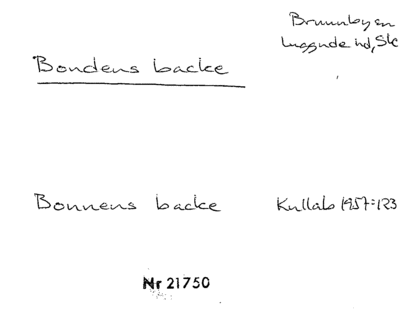 Brunnby sn
Luggude hd, Sk
Bondens backe
Bonnens backe
Kullab 1957:123
Nr 21750